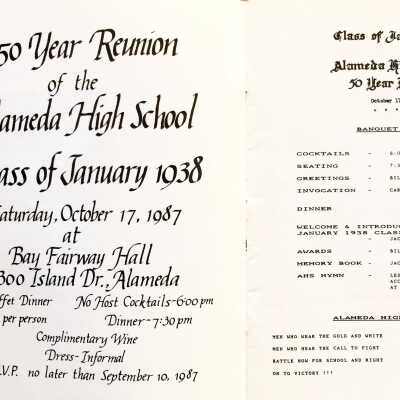 50 Year Reunion
of the
lameda High School
lass of January 1938
aturday, October 17, 1987
at
Bay Fairway Hall
300 Island Dr., Alameda
ffet Dinner No Host Cocktails - 6:00 pm
per person Dinner - 7:30 pm
Complimentary Wine
Dress - Informal
.V.P. no later than September 10, 1987
Class of Ja
Alameda Hi
50 Year
October 17
* * *
BANQUET
COCKTAILS - 6:0
SEATING - 7:
GREETINGS - BIL
INVOCATION - CAR
DINNER
WELCOME & INTRODUC
JANUARY 1938 CLASS
- JAC
AWARDS - BIL
MEMORY BOOK - JAC
AHS HYMN - LES
ACC
AT
ALAMEDA HIG
MEN WHO WEAR THE GOLD AND WHITE
MEN WHO HEAR THE CALL TO FIGHT
BATTLE NOW FOR SCHOOL AND RIGHT
ON TO VICTORY !!!